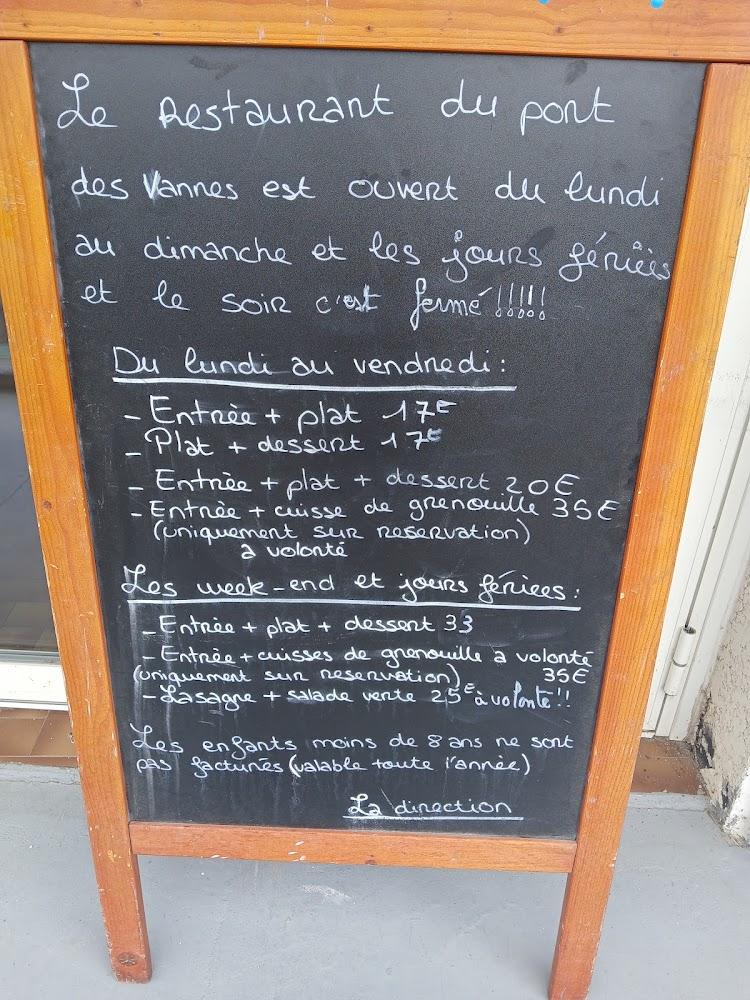 Le Restaurant du pont
des Vannes est ouvert du lundi
au dimanche et les jours fériées
et le soir c'est fermé !!!!!
Du lundi au vendredi :
- Entrée + plat 17€
- Plat + dessert 17€
- Entrée + plat + dessert 20€
- Entrée + cuisse de grenouille 35€
(uniquement sur reservation)
a volonté
Les week-end et jours fériees :
- Entrée + plat + dessert 33
- Entrée + cuisses de grenouille a volonté
(uniquement sur reservation) 35€
- Lasagne + salade verte 25€ à volonté !!
Les enfants moins de 8 ans ne sont
pas facturés (valable toute l'année)
La direction